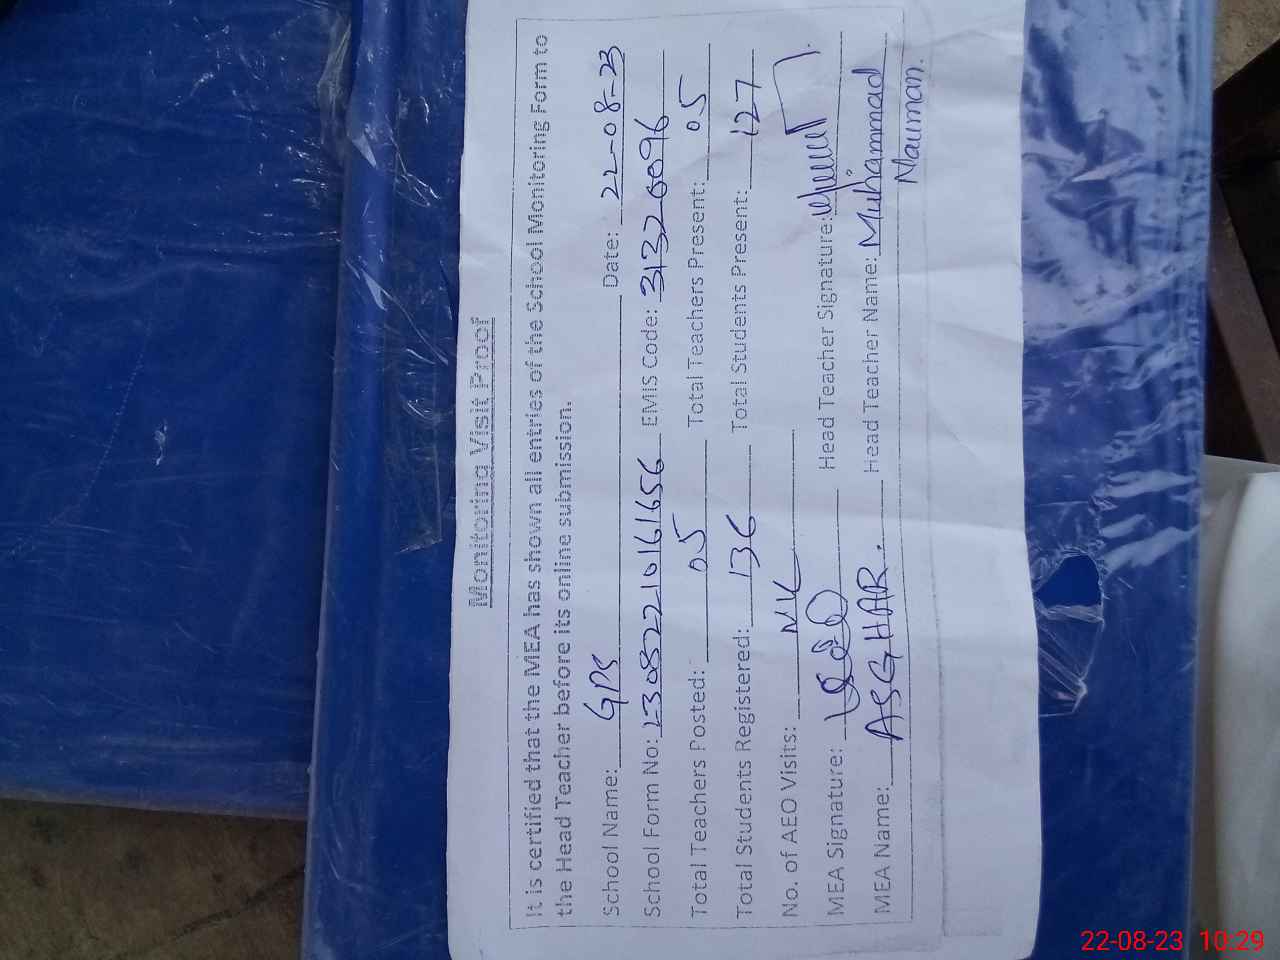 Monitoring Visit Proof
It is certified that the MEA has shown all entries of the School Monitoring Form to
the Head Teacher before its online submission.
School Name: GPS Date: 22-08-23
School Form No: 23082210161656 EMIS Code: 31326096
Total Teachers Posted: 05 Total Teachers Present: 05
Total Students Registered: 136 Total Students Present: 127
No. of AEO Visits: NIL
MEA Signature: Head Teacher Signature:
MEA Name: ASGHAR. Head Teacher Name: Muhammad
Nauman.
22-08-23 10:29